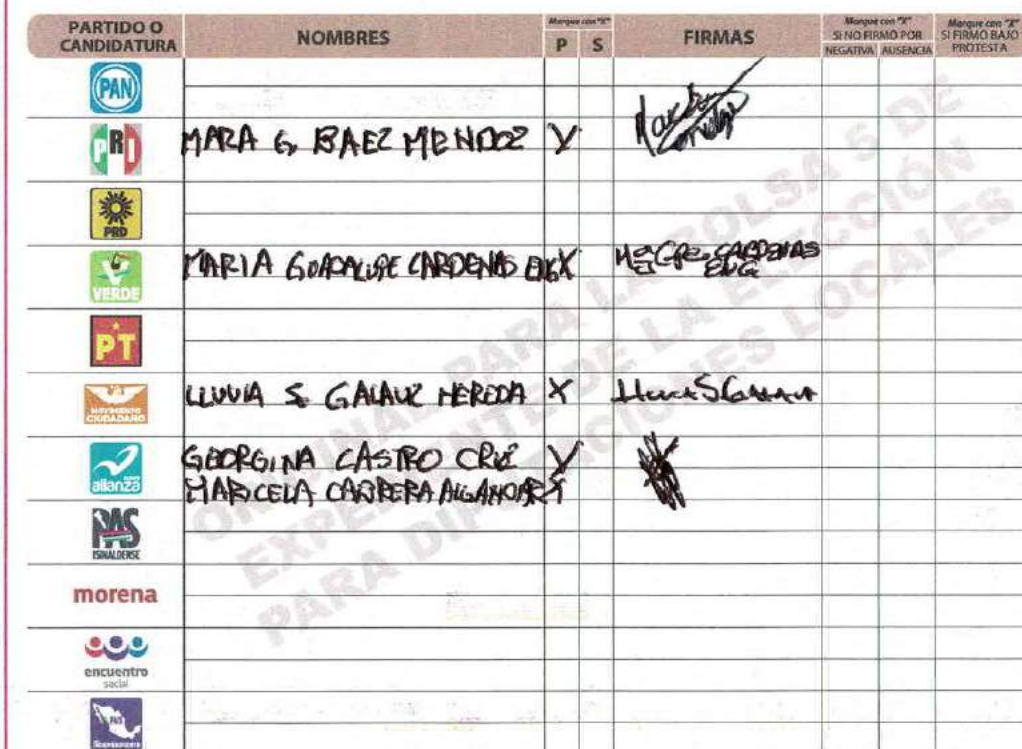 PARTIDO O CANDIDATURA
NOMBRES
Marque con "X"
P S
FIRMAS
Marque con "X"
SI NO FIRMÓ POR
NEGATIVA AUSENCIA
Marque con "X"
SI FIRMÓ BAJO PROTESTA
PAN
PRI MARA G. BAEZ MENDOZ X
PRD
VERDE MARIA GUADALUPE CARDENAS X Ma Gpe. CARDENAS
PT
MOVIMIENTO CIUDADANO LLUVIA S. GALAVIZ HEREDA X
alianza GEORGINA CASTRO CRUZ X
MARICELA CARRERA X
PAS
SINALOENSE
morena
encuentro
social
PARA LA BOLSA 5 DE
EXPEDIENTE DE LA ELECCIÓN
PARA DIPUTACIONES LOCALES
ORIGINAL